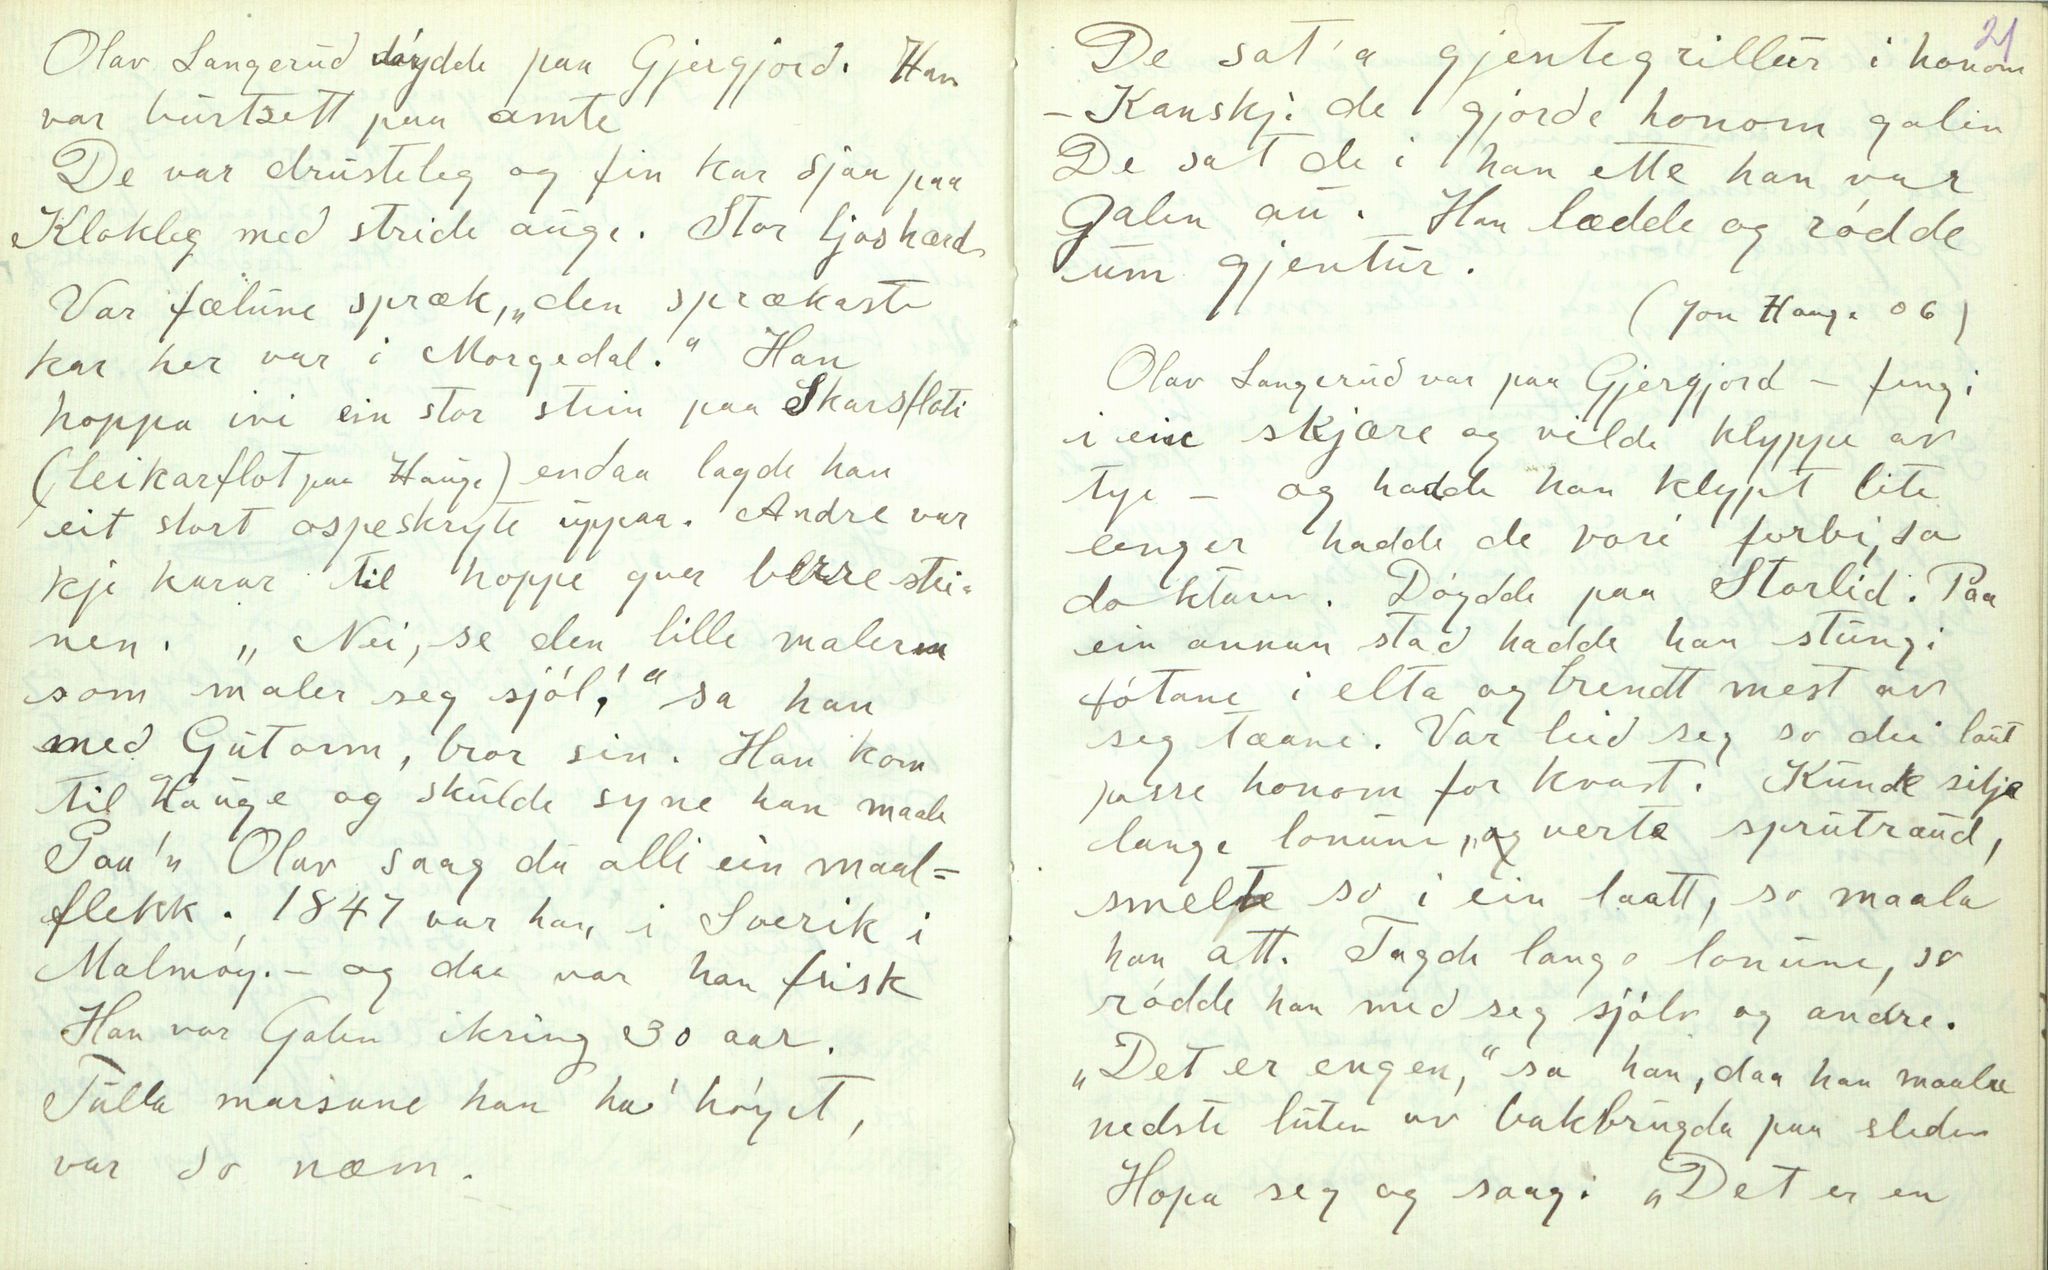 Olav Langerud döydde paa Gjergjord. Han
var burtsett paa amte
De var drusteleg og fin kar sjaa paa
Klokleg med stride auge. Stor ljoshærd
Var fælune spræk, „den sprækaste
kar her var i Morgedal." Han
hoppa ivi ein stor stein paa Skarsfloti
(leikarflot paa Hauge) endaa lagde han
eit stort ospeskryte uppaa. Andre var
kje karar til hoppe yver berre stei-
nen. „Nei, se den lille maleren
som maler seg sjól!" sa han
med Gutorm, bror sin. Han kom
til Hauge og skulde syne han maale
Paa'n Olav saag du alli ein maal=
flekk. 1847 var han i Sverik i
Malmóy. – og daa var han frisk
Han var Galen ikring 30 aar.
Tulla marsane han ha' hóyrt,
var so næm.
21
De sat'a gjentegrillur i honom
– Kanskje de gjorde honom galen
De sat de i han ette han var
Galen au. Han lædde ogródde
um gjentur.
(Jon Hauge 06)
Olav Langerud var paa Gjergjord – fengi
i ei skjære og vilde klyppe av
tye – og hadde han klypt lite
lenger hadde de vori forbi, sa
doktaren. Dóydde paa Storlid. Paa
ein annan stad hadde han stungi
fótane i elta og brendt mest av
seg tæane. Var leid seg so dei laut
passe honom for kvast. Kunde sitje
lange lonune, og verte sprutraud,
smelte so i ein laatt, so maala
han att. Tagde lange lonune, so
ródde han med seg sjólv og andre.
„Det er engen," sa han, daa han maala
nedste luten av bakbrugda paa sleden
Hopa seg og saag: „Det er en